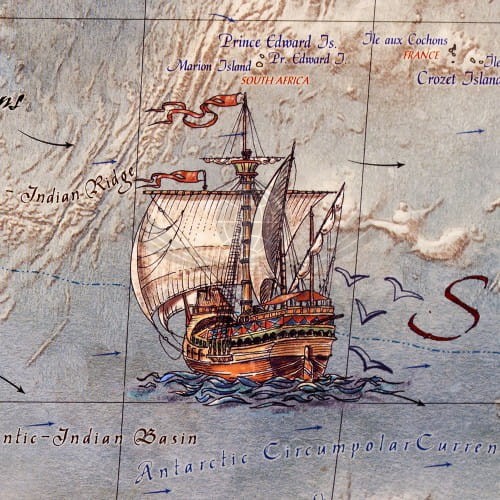 Prince Edward Is.
Marion Island
Pr. Edward I.
SOUTH AFRICA
Île aux Cochons
FRANCE
Île
Crozet Island
ns
- Indian Ridge
S
ntic-Indian Basin
Antarctic Circumpolar Curren